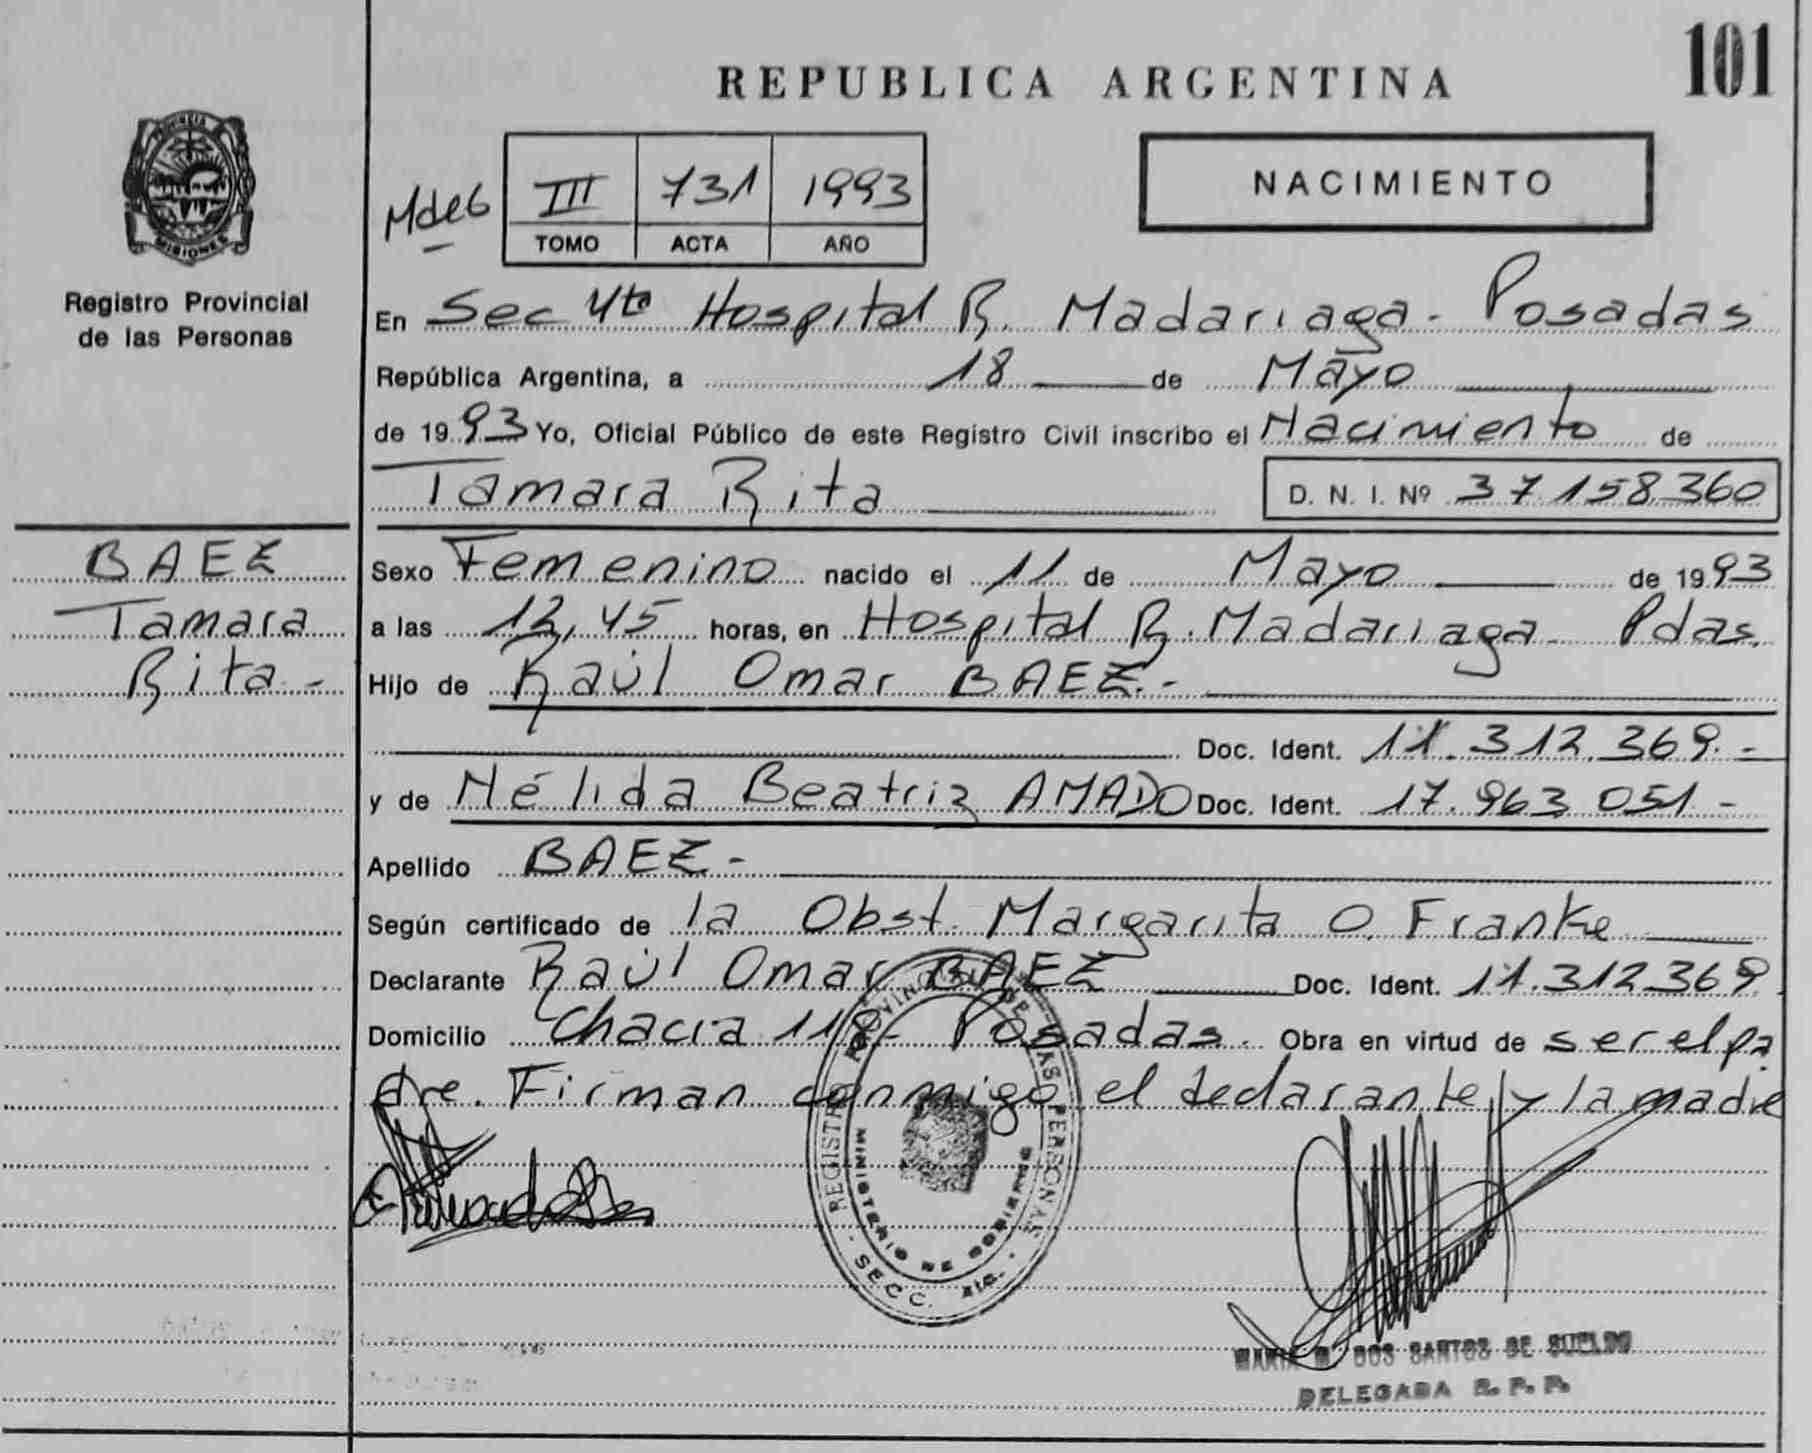 REPUBLICA ARGENTINA
101
PROVINCIA
MISIONES
Registro Provincial
de las Personas
III 731 1993
TOMO ACTA AÑO
NACIMIENTO
En Sec 4ta Hospital R. Madariaga - Posadas
República Argentina, a 18 de Mayo
de 1993 Yo, Oficial Público de este Registro Civil inscribo el Nacimiento de
Tamara Rita D. N. I. Nº 37158360
BAEZ
Tamara
Rita -
Sexo Femenino nacido el 11 de Mayo de 1993
a las 12,45 horas, en Hospital R. Madariaga - Pdas.
Hijo de Raúl Omar BAEZ.-
Doc. Ident. 11.312.369.-
y de Nélida Beatriz AMADO Doc. Ident. 17.963 051 -
Apellido BAEZ -
Según certificado de la Obst. Margarita O. Franke
Declarante Raúl Omar BAEZ Doc. Ident. 11.312369
Domicilio Chacra 118 - Posadas. Obra en virtud de ser el pa
dre. Firman conmigo el declarante y la madre
REGISTRO PROVINCIAL DE LAS PERSONAS
MINISTERIO DE GOBIERNO
SECC. 4ta.
DOS SANTOS DE SUELDO
DELEGADA R. P. P.